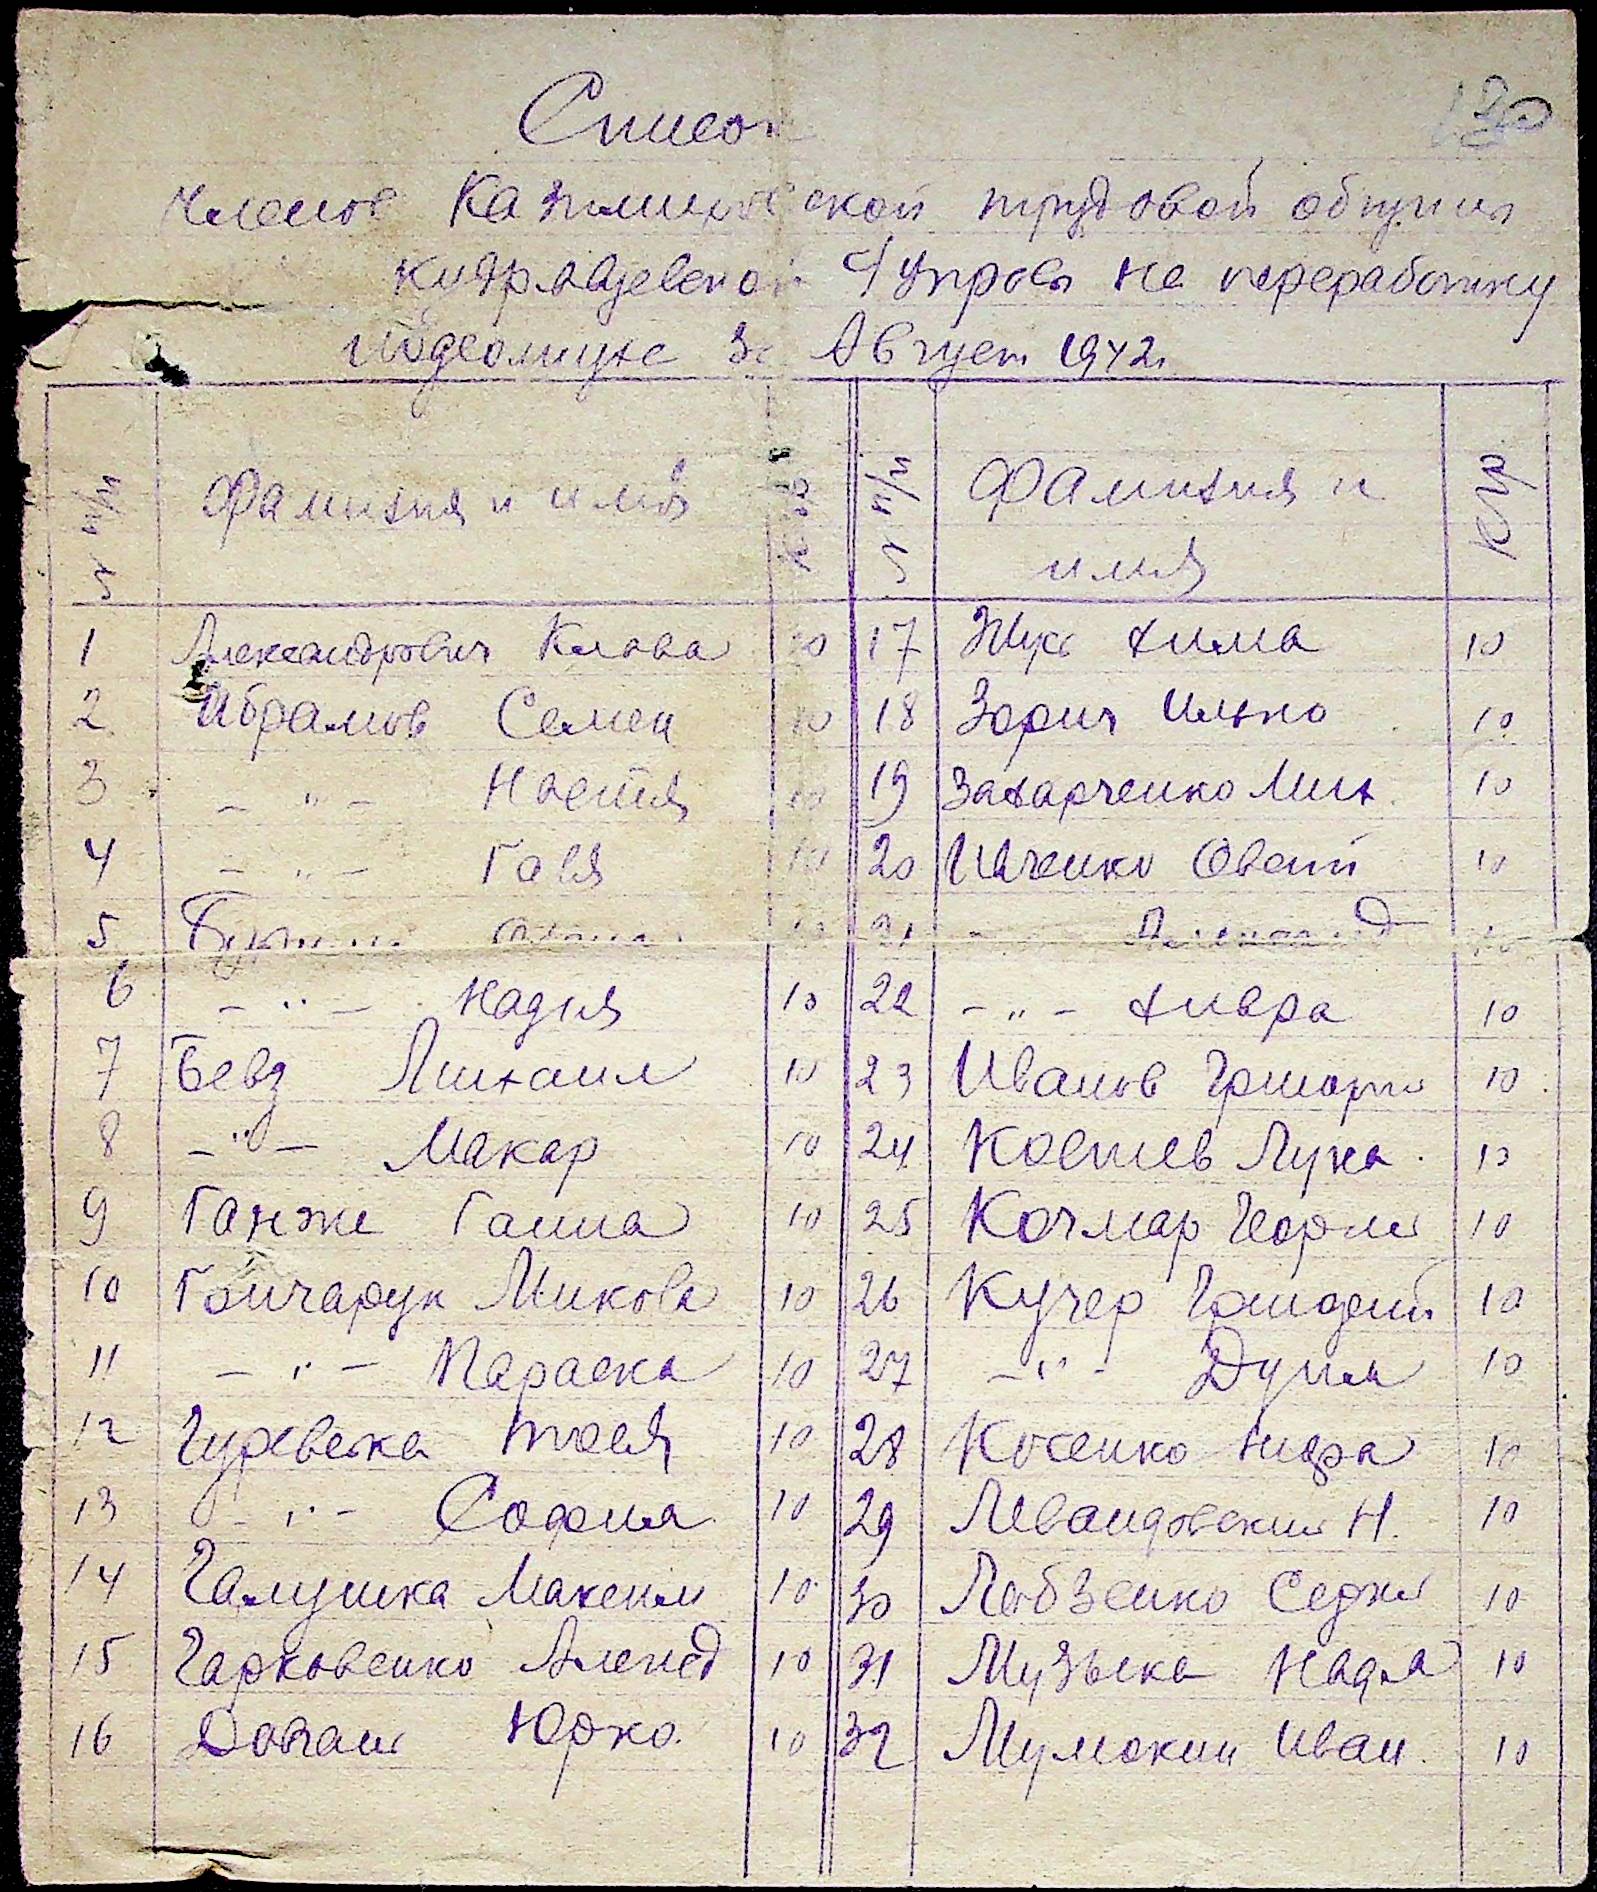 Список
членов Казимировской трудовой общины
Кудрявцевской Управы на переработку
подсолнуха за Август 1942г.
№ п/п Фамилия и имя кгр № п/п Фамилия и имя кгр
1 Александрович Клава 10 17 Жук Хима 10
2 Абрамов Семен 10 18 Зорич Илько 10
3 - " - Настя 10 19 Захарченко Мих. 10
4 - " - Галя 10 20 Ильченко Овсий 10
5 10 21 - " - Александ 10
6 - " - Надия 10 22 - " - Хивра 10
7 Бевз Михаил 10 23 Иванов Григорий 10
8 - " - Макар 10 24 Костев Лука 10
9 Ганжа Ганна 10 25 Кочмар Георгий 10
10 Гончарук Микола 10 26 Кучер 10
11 - " - Параска 10 27 - " - Дуня 10
12 Гуревска Тося 10 28 Косенко 10
13 - " - София 10 29 Левандовский Н. 10
14 Галушка Максим 10 30 Лобзенко Сергий 10
15 Гарковенко Алексд 10 31 Музыка Надя 10
16 Довгань Юрко. 10 32 Мумокин Иван. 10